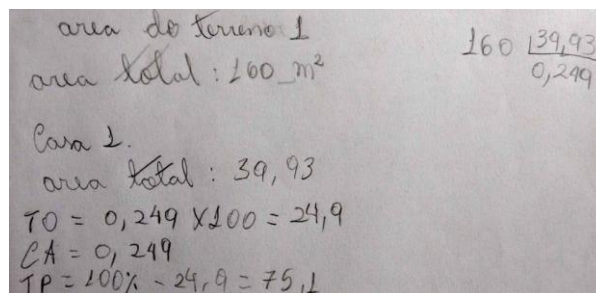 area do terreno 1
area total: 160 m²
160 | 39,93
0,249
Casa 1.
area total: 39,93
TO = 0,249 X100 = 24,9
CA = 0,249
TP = 100% - 24,9 = 75,1